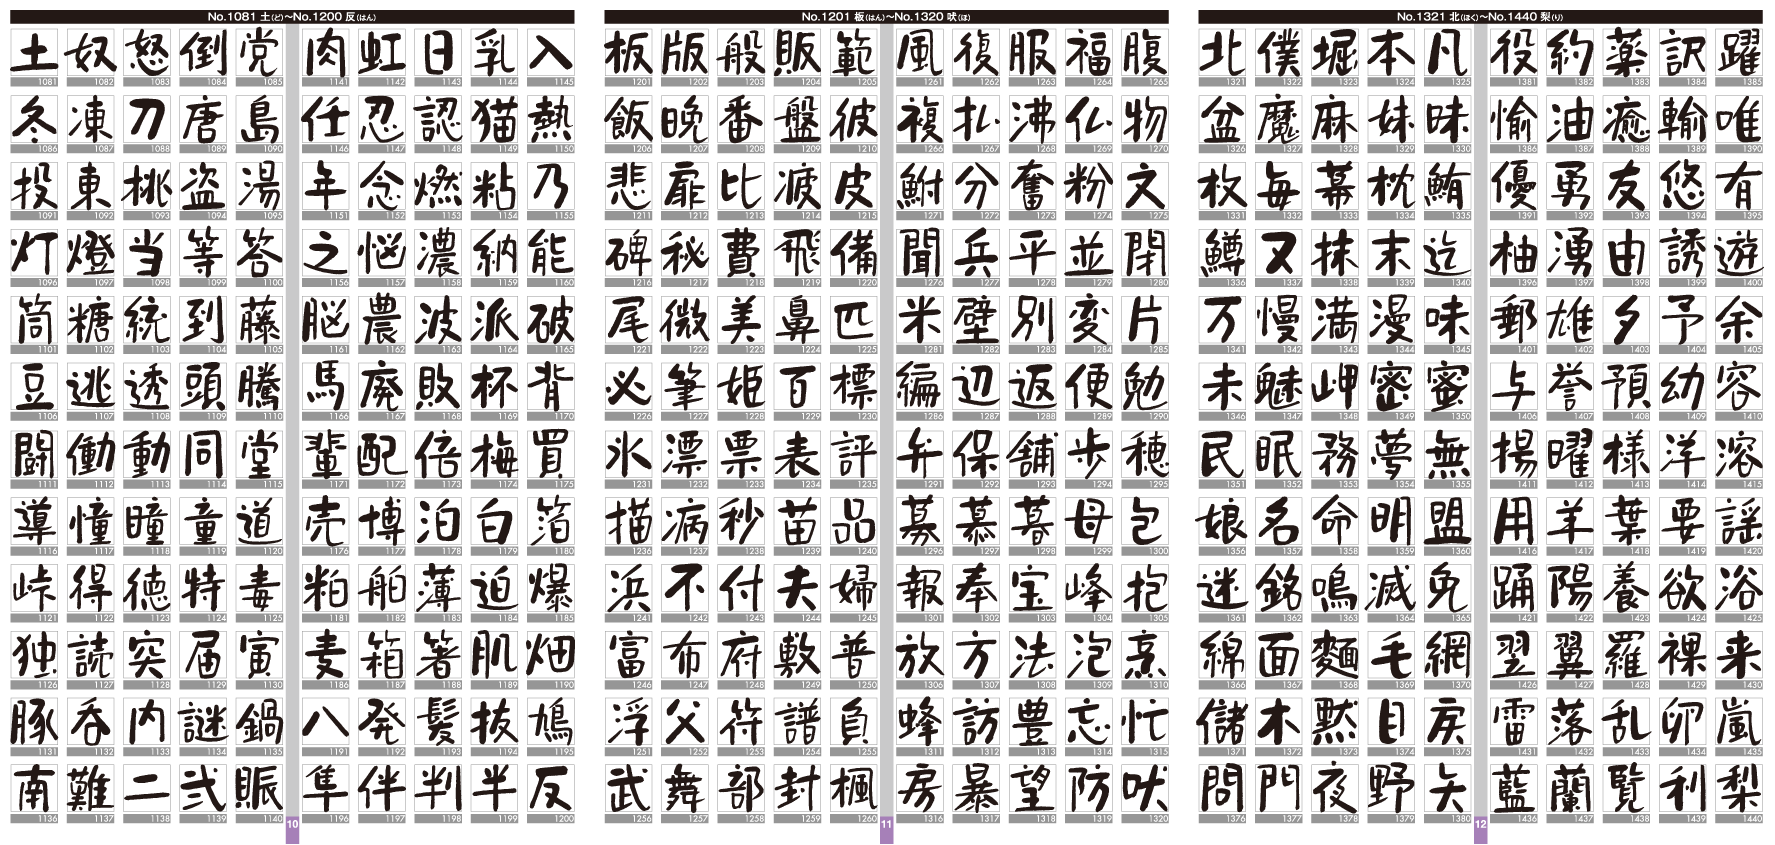 No.1081 土(ど)～No.1200 反(はん)
土 奴 怒 倒 党
1081 1082 1083 1084 1085
冬 凍 刀 唐 島
1086 1087 1088 1089 1090
投 東 桃 盗 湯
1091 1092 1093 1094 1095
灯 燈 当 等 答
1096 1097 1098 1099 1100
筒 糖 統 到 藤
1101 1102 1103 1104 1105
豆 逃 透 頭 騰
1106 1107 1108 1109 1110
闘 働 動 同 堂
1111 1112 1113 1114 1115
導 憧 瞳 童 道
1116 1117 1118 1119 1120
峠 得 徳 特 毒
1121 1122 1123 1124 1125
独 読 突 届 寅
1126 1127 1128 1129 1130
豚 呑 内 謎 鍋
1131 1132 1133 1134 1135
南 難 二 弐 賑
1136 1137 1138 1139 1140
肉 虹 日 乳 入
1141 1142 1143 1144 1145
任 忍 認 猫 熱
1146 1147 1148 1149 1150
年 念 燃 粘 乃
1151 1152 1153 1154 1155
之 悩 濃 納 能
1156 1157 1158 1159 1160
脳 農 波 派 破
1161 1162 1163 1164 1165
馬 廃 敗 杯 背
1166 1167 1168 1169 1170
輩 配 倍 梅 買
1171 1172 1173 1174 1175
売 博 泊 白 箔
1176 1177 1178 1179 1180
粕 舶 薄 迫 爆
1181 1182 1183 1184 1185
麦 箱 箸 肌 畑
1186 1187 1188 1189 1190
八 発 髪 抜 鳩
1191 1192 1193 1194 1195
隼 伴 判 半 反
1196 1197 1198 1199 1200
10
No.1201 板(はん)～No.1320 吠(ほ)
板 版 般 販 範
1201 1202 1203 1204 1205
飯 晩 番 盤 彼
1206 1207 1208 1209 1210
悲 扉 比 疲 皮
1211 1212 1213 1214 1215
碑 秘 費 飛 備
1216 1217 1218 1219 1220
尾 微 美 鼻 匹
1221 1222 1223 1224 1225
必 筆 姫 百 標
1226 1227 1228 1229 1230
氷 漂 票 表 評
1231 1232 1233 1234 1235
描 病 秒 苗 品
1236 1237 1238 1239 1240
浜 不 付 夫 婦
1241 1242 1243 1244 1245
富 布 府 敷 普
1246 1247 1248 1249 1250
浮 父 符 譜 負
1251 1252 1253 1254 1255
武 舞 部 封 楓
1256 1257 1258 1259 1260
風 復 服 福 腹
1261 1262 1263 1264 1265
複 払 沸 仏 物
1266 1267 1268 1269 1270
鮒 分 奮 粉 文
1271 1272 1273 1274 1275
聞 兵 平 並 閉
1276 1277 1278 1279 1280
米 壁 別 変 片
1281 1282 1283 1284 1285
編 辺 返 便 勉
1286 1287 1288 1289 1290
弁 保 舗 歩 穂
1291 1292 1293 1294 1295
募 慕 暮 母 包
1296 1297 1298 1299 1300
報 奉 宝 峰 抱
1301 1302 1303 1304 1305
放 方 法 泡 烹
1306 1307 1308 1309 1310
蜂 訪 豊 忘 忙
1311 1312 1313 1314 1315
房 暴 望 防 吠
1316 1317 1318 1319 1320
11
No.1321 北(ほく)～No.1440 梨(り)
北 僕 堀 本 凡
1321 1322 1323 1324 1325
盆 魔 麻 妹 昧
1326 1327 1328 1329 1330
枚 毎 幕 枕 鮪
1331 1332 1333 1334 1335
鱒 又 抹 末 迄
1336 1337 1338 1339 1340
万 慢 満 漫 味
1341 1342 1343 1344 1345
未 魅 岬 密 蜜
1346 1347 1348 1349 1350
民 眠 務 夢 無
1351 1352 1353 1354 1355
娘 名 命 明 盟
1356 1357 1358 1359 1360
迷 銘 鳴 滅 免
1361 1362 1363 1364 1365
綿 面 麺 毛 網
1366 1367 1368 1369 1370
儲 木 黙 目 戻
1371 1372 1373 1374 1375
問 門 夜 野 矢
1376 1377 1378 1379 1380
役 約 薬 訳 躍
1381 1382 1383 1384 1385
愉 油 癒 輸 唯
1386 1387 1388 1389 1390
優 勇 友 悠 有
1391 1392 1393 1394 1395
柚 湧 由 誘 遊
1396 1397 1398 1399 1400
郵 雄 夕 予 余
1401 1402 1403 1404 1405
与 誉 預 幼 容
1406 1407 1408 1409 1410
揚 曜 様 洋 溶
1411 1412 1413 1414 1415
用 羊 葉 要 謡
1416 1417 1418 1419 1420
踊 陽 養 欲 浴
1421 1422 1423 1424 1425
翌 翼 羅 裸 来
1426 1427 1428 1429 1430
雷 落 乱 卵 嵐
1431 1432 1433 1434 1435
藍 蘭 覧 利 梨
1436 1437 1438 1439 1440
12